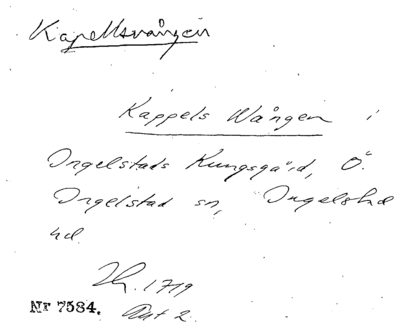 Kapellsvången
Kappels Wången i
Ingelstads Kungsgård, Ö.
Ingelstad sn, Ingelstad
hd.
1719
Nr 7584. Akt 2